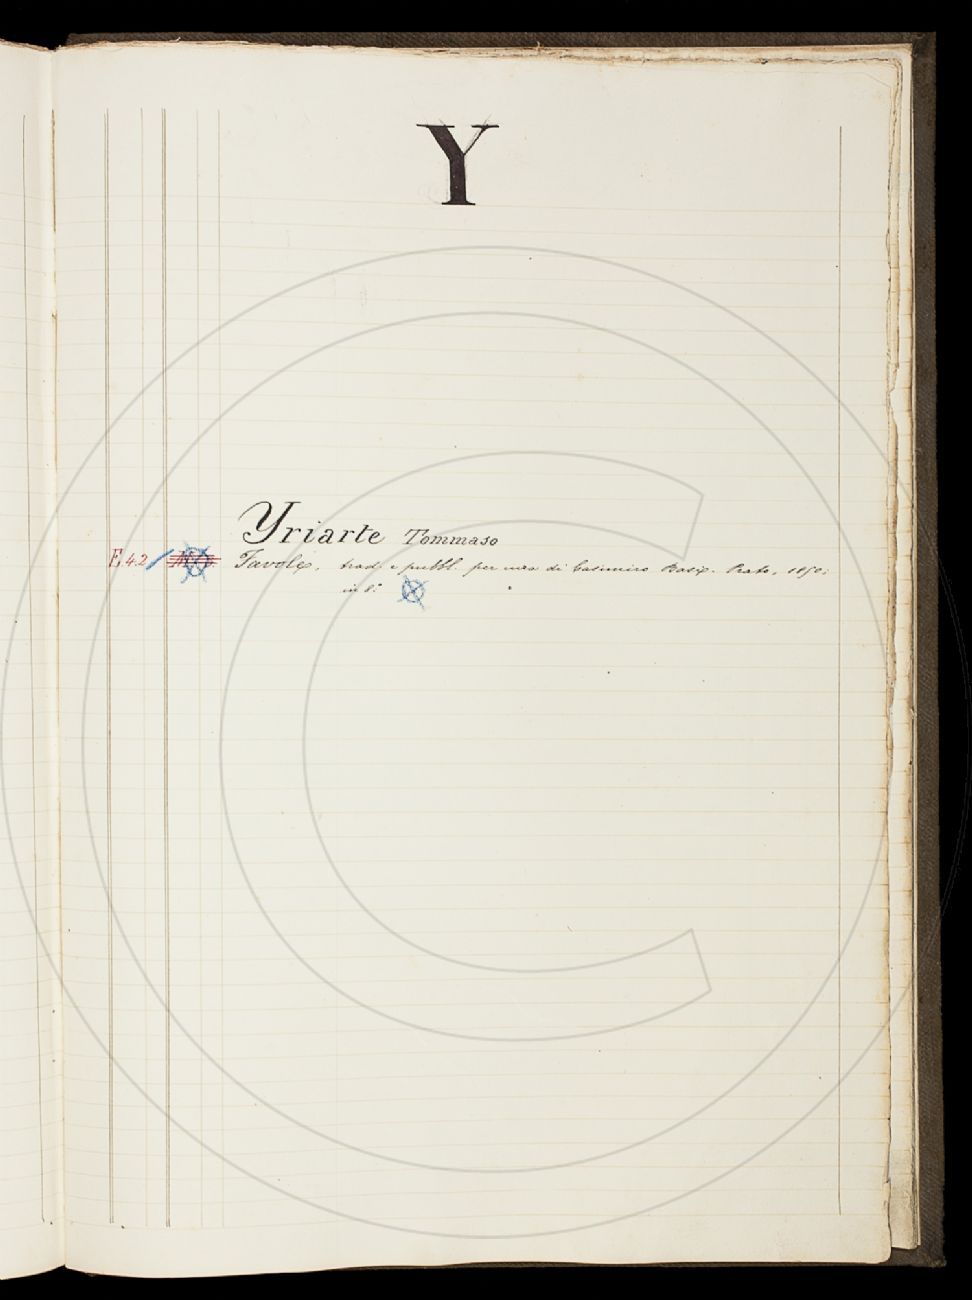 Y
Yriarte Tommaso
E. 4.2 Favole, trad. e pubbl. per cura di Casimiro Basi. Prato, 1850;
in 8.°